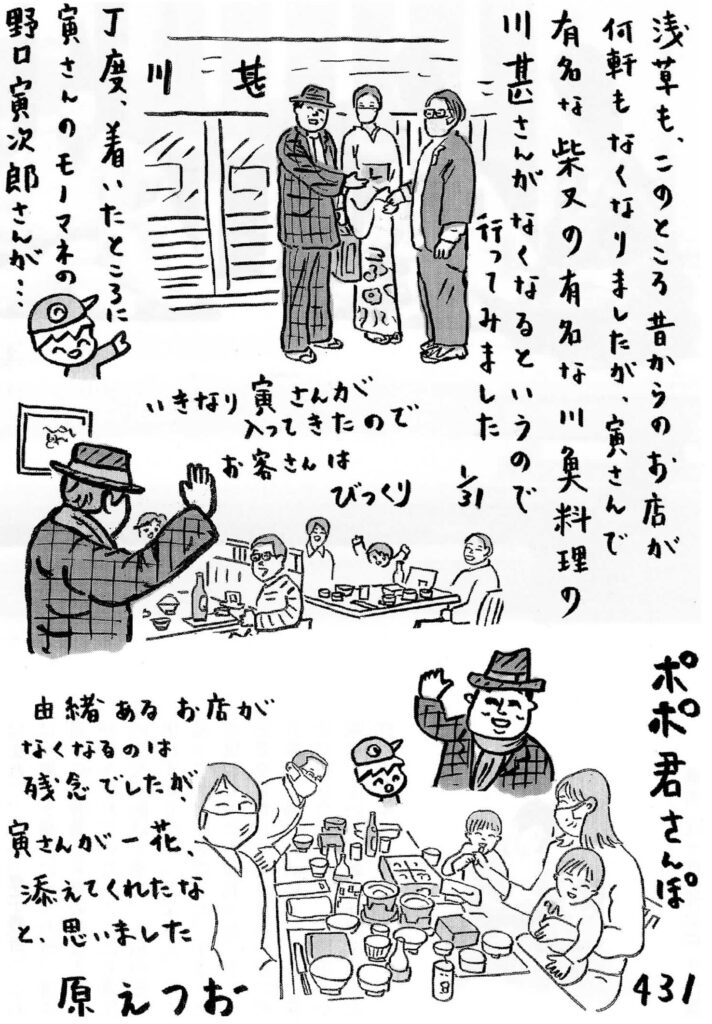 浅草も、このところ昔からのお店が
何軒もなくなりましたが、寅さんで
有名な柴又の有名な川魚料理の
川甚さんがなくなるというので
行ってみました
1/31
川甚
丁度、着いたところに
寅さんのモノマネの
野口寅次郎さんが…
いきなり寅さんが
入ってきたので
お客さんは
びっくり
ポポ君さんぽ
由緒あるお店が
なくなるのは
残念でしたが、
寅さんが一花、
添えてくれたな
と、思いました
原えつお
431